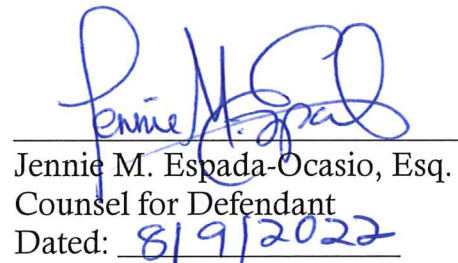 Jennie M. Espad
Jennie M. Espada-Ocasio, Esq.
Counsel for Defendant
Dated: 8/9/2022